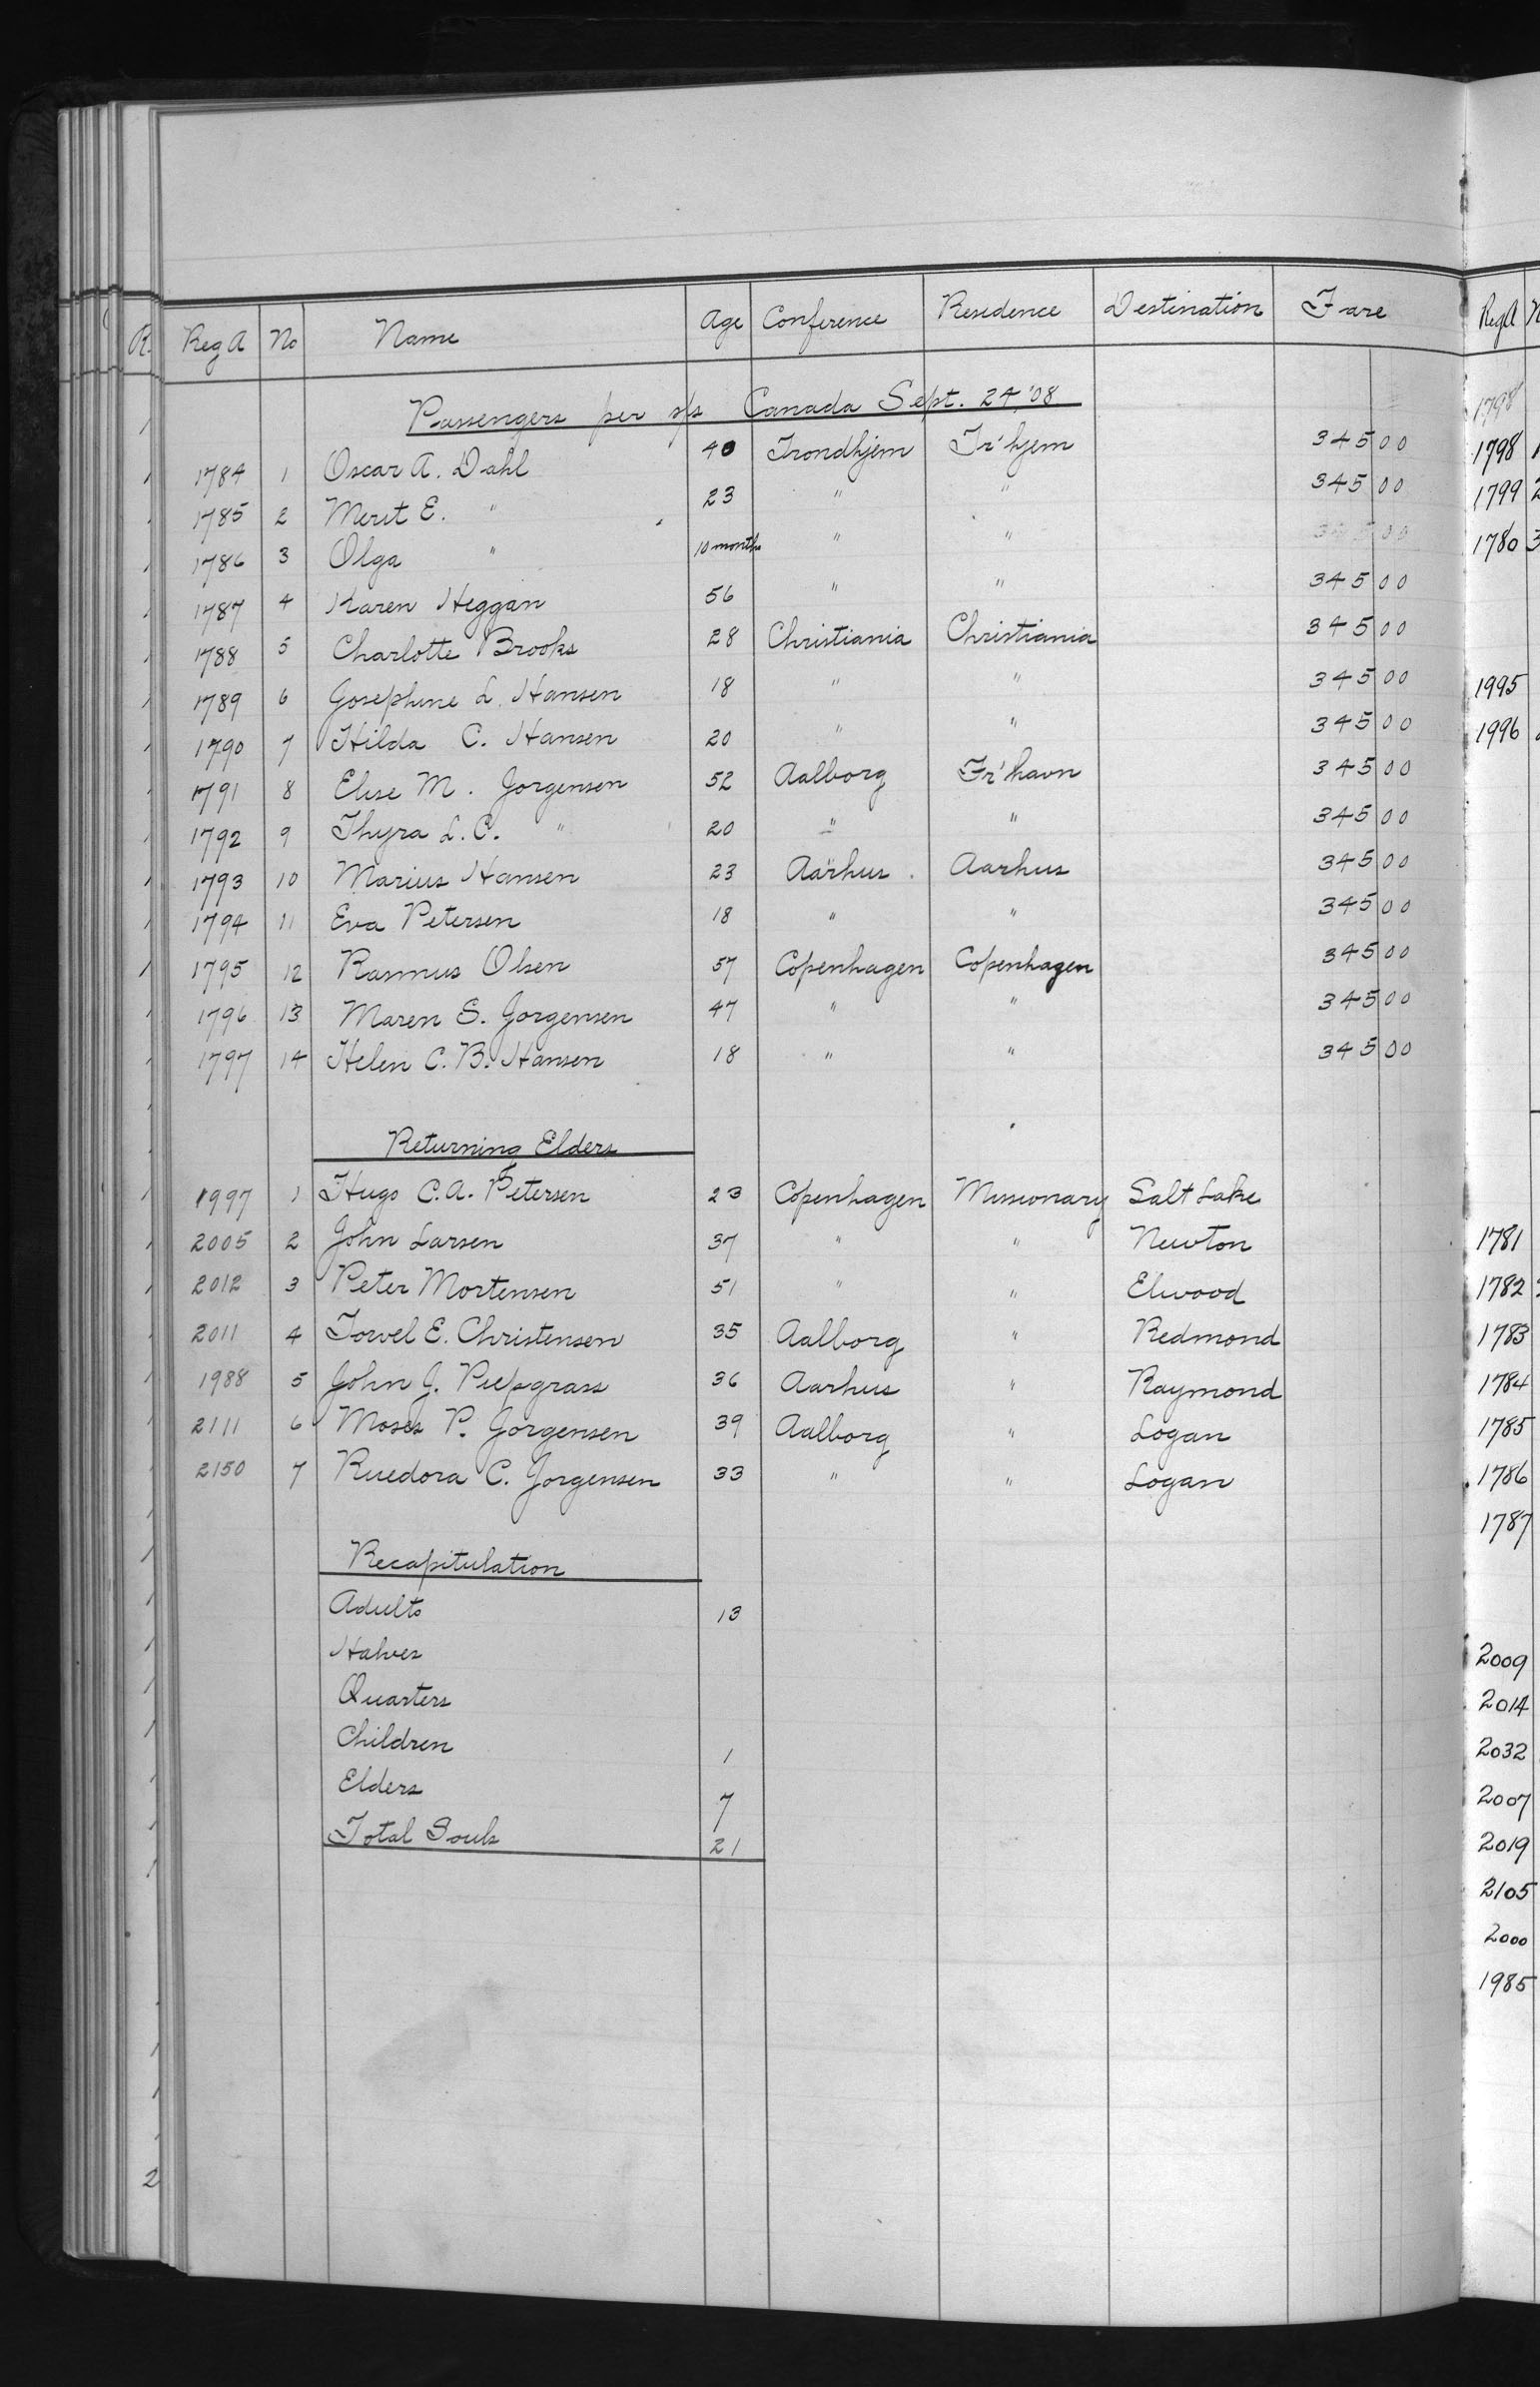 Reg A No Name Age Conference Residence Destination Fare
Passengers per s/s Canada Sept. 24, '08
1784 1 Oscar A. Dahl 40 Trondhjem Tr'hjem 345 00
1785 2 Merit E. " 23 " " 345 00
1786 3 Olga " 10 months " "
1787 4 Karen Heggan 56 " " 345 00
1788 5 Charlotte Brooks 28 Christiania Christiania 345 00
1789 6 Josephine L. Hansen 18 " " 345 00
1790 7 Hilda C. Hansen 20 " " 345 00
1791 8 Elise M. Jorgensen 52 Aalborg Fr'havn 345 00
1792 9 Thyra L. C. " 20 " " 345 00
1793 10 Marius Hansen 23 Aarhus Aarhus 345 00
1794 11 Eva Petersen 18 " " 345 00
1795 12 Rasmus Olsen 57 Copenhagen Copenhagen 345 00
1796 13 Maren S. Jorgensen 47 " " 345 00
1797 14 Helen C. B. Hansen 18 " " 345 00
Returning Elders
1997 1 Hugo C. A. Petersen 23 Copenhagen Missionary Salt Lake
2005 2 John Larsen 37 " " Newton
2012 3 Peter Mortensen 51 " " Elwood
2011 4 Torvel E. Christensen 35 Aalborg " Redmond
1988 5 John J. Peepgrass 36 Aarhus " Raymond
2111 6 Moses P. Jorgensen 39 Aalborg " Logan
2150 7 Ruedora C. Jorgensen 33 " " Logan
Recapitulation
Adults 13
Halves
Quarters
Children 1
Elders 7
Total Souls 21
R.
2
Reg A
1798
1798
1799 2
1780 3
1995
1996
1781
1782
1783
1784
1785
1786
1787
2009
2014
2032
2007
2019
2105
2000
1985